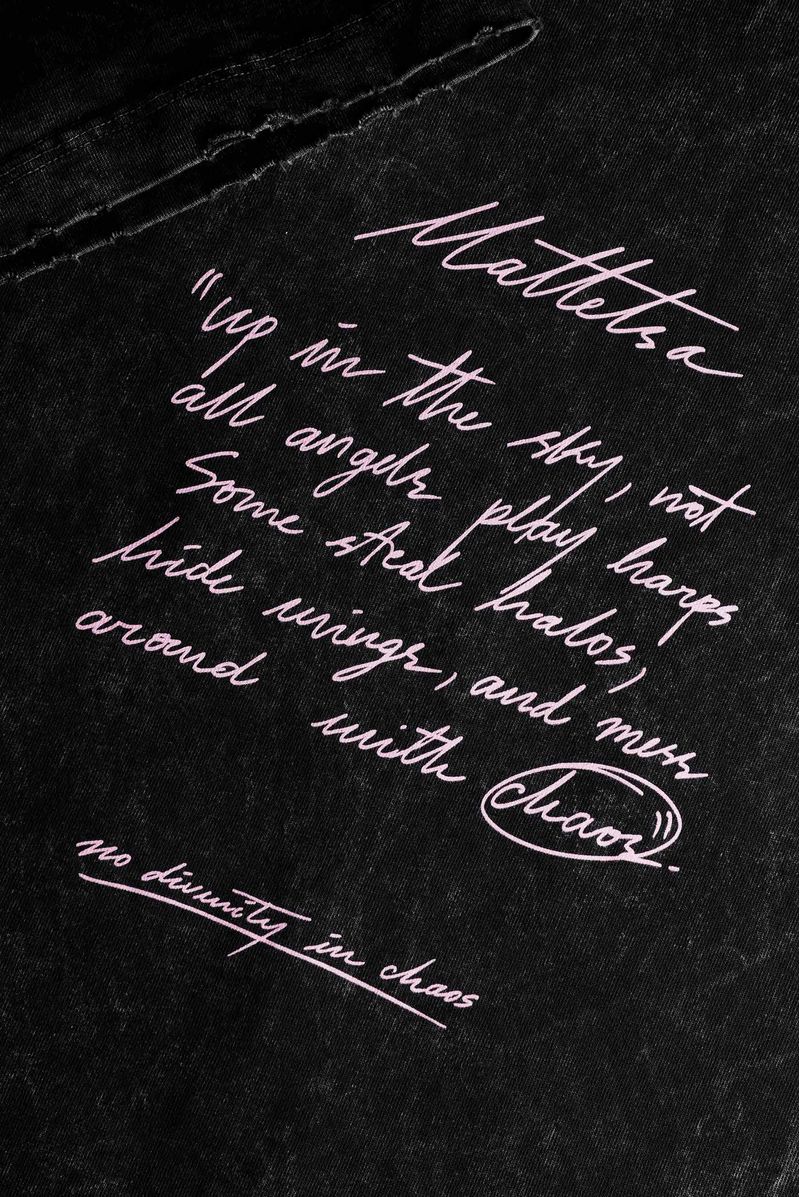 Mattetsa
"up in the sky, not
all angels play harps
Some steal halos,
hide wings, and mess
around with chaos".
no divinity in chaos